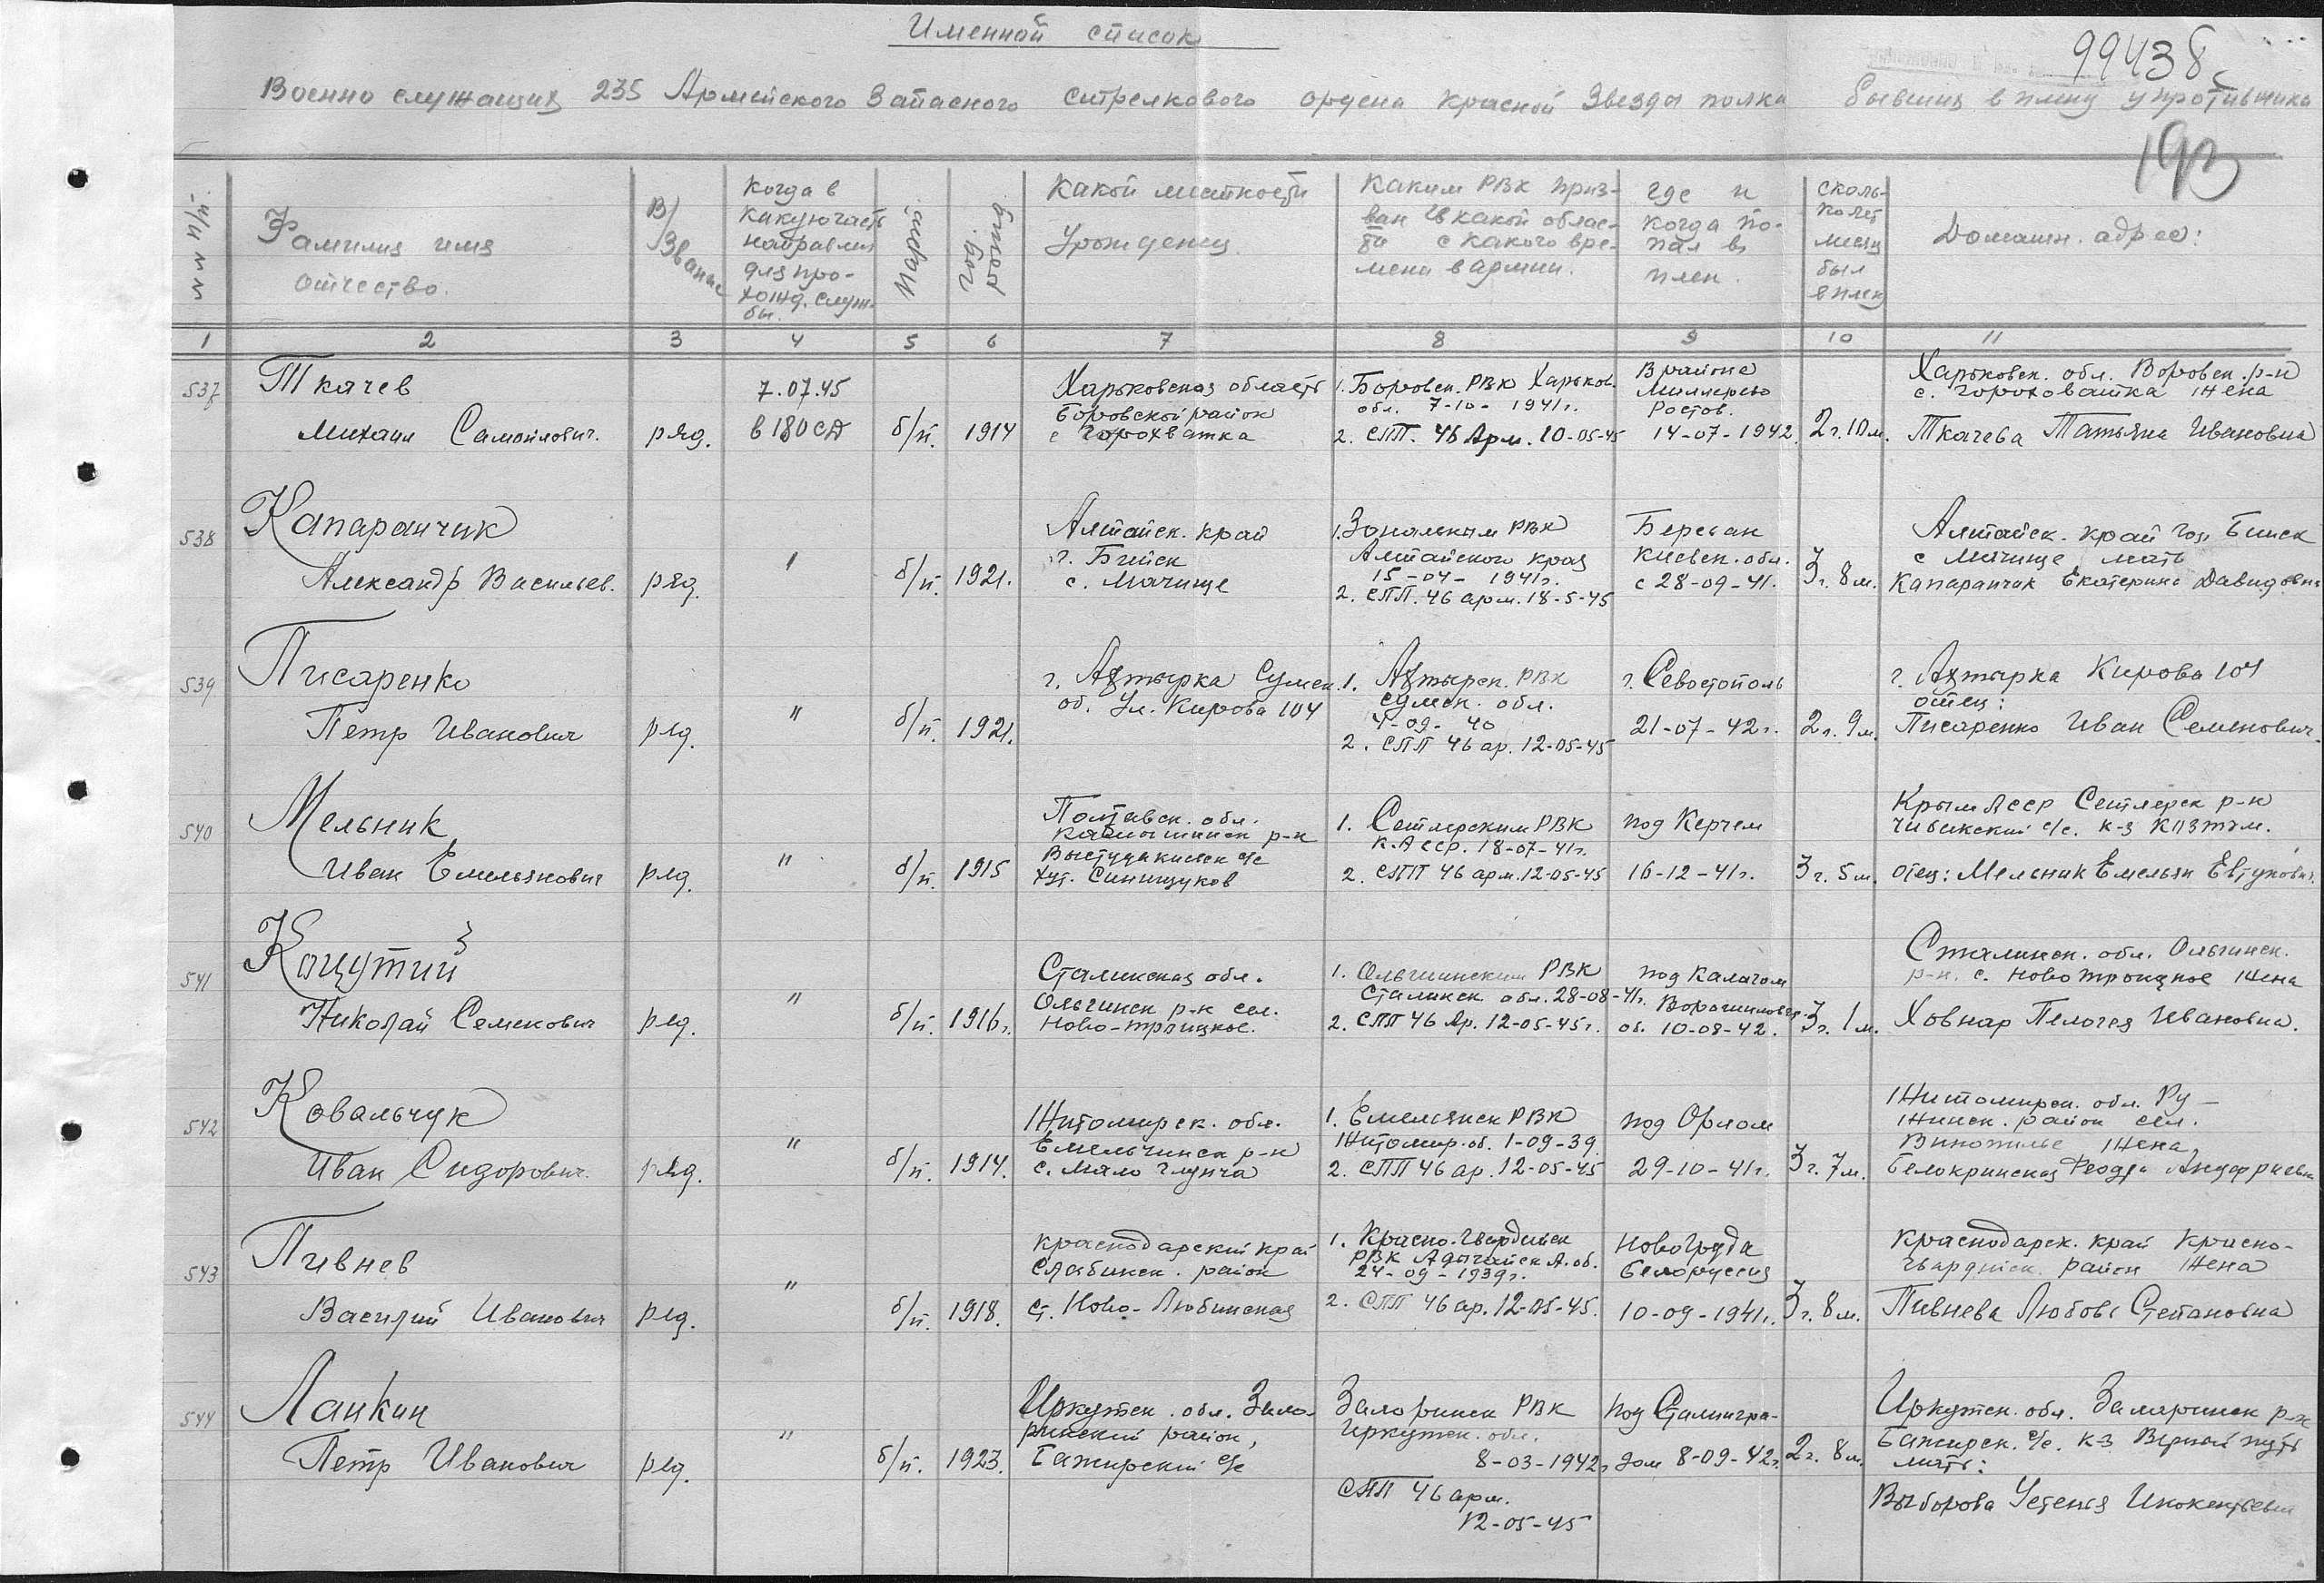 Именной список
99438с
Военно служащих 235 Армейского Запасного стрелкового ордена Красной Звезды полка бывших в плену у противника
193
№№ п/п
Фамилия имя отчество.
В/Звание
Когда в какую часть направлен для прохожд. службы.
Парт.
год рожд.
Какой местности Урожденец.
Каким РВК призван и в какой области с какого времени в армии.
где и когда попал в плен.
сколько лет месяц был в плену
Домашн. адрес:
1 2 3 4 5 6 7 8 9 10 11
537
Ткачев
Михаил Самойлович.
ряд.
7.07.45
в 180 СД
б/п.
1914
Харьковская область
Боровской район
с Горохватка
1. Боровск. РВК Харьков.
обл. 7-10- 1941г.
2. СПП. 46 Арм. 10-05-45
В районе
Миллерово
Ростов.
14-07-1942.
2г.10м.
Харьковск. обл. Боровск. р-н
с. Гороховатка жена
Ткачева Татьяна Ивановна
538
Капаранчик
Александр Васильев.
ряд.
"
б/п.
1921.
Алтайск. край
г. Бийск
с. Мочище
1. Зональным РВК
Алтайского края
15-04- 1941г.
2. СПП. 46 арм. 18-5-45
Березан
Киевск. обл.
с 28-09-41.
3г. 8м.
Алтайск. край гор Бийск
с Мочище мать
Капаранчик Екатерина Давидовна
539
Писаренко
Петр Иванович
ряд.
"
б/п.
1921.
г. Ахтырка Сумск.
об. Ул. Кирова 104
1. Ахтырск. РВК
Сумск. обл.
4-09- 40
2. СПП 46 ар. 12-05-45
г. Севостополь
21-07-42г.
2г. 9м.
г. Ахтырка Кирова 104
отец:
Писаренко Иван Семенович.
540
Мельник
Иван Емельянович
ряд.
"
б/п.
1915
Полтавск. обл.
р-н
с/с
хут. Синищуков
1. Сейтлерским РВК
К.АССР. 18-07-41г.
2. СПП 46 арм. 12-05-45
под Керчем
16-12-41г.
3г. 5м.
Крым АССР Сейтлерск р-н
с/с. к-з
отец: Мельник Емельян Евтухович.
541
Коцутий
Николай Семенович
ряд.
"
б/п.
1916г.
Сталинская обл.
Ольгинск р-н сел.
Ново-троицкое.
1. Ольгинским РВК
Сталинск обл. 28-08-41г.
2. СПП 46 Ар. 12-05-45г.
под Калачом
Ворошиловгр.
об. 10-08-42.
3г. 1м.
Сталинск. обл. Ольгинск.
р-н. с. Ново троицкое жена
Ховнар Пелогея Ивановна.
542
Ковальчук
Иван Сидорович.
ряд.
"
б/п.
1914.
Житомирск. обл.
Емельчинск р-н
с. Мало Глумча
1. Емельянск РВК
Житомир. об. 1-09-39.
2. СПП 46 ар. 12-05-45
под Орлом
29-10-41г.
3г. 7м.
Житомирск. обл. Ру-
жинск. район сел.
жена
Белокринская Феодра
543
Пивнев
Василий Иванович
ряд.
"
б/п.
1918.
Краснодарский край
Слабинск. район
ст. Ново-Любинская
1. Красно-Гвардейск
РВК Адыгайск А. об.
24-09-1939г.
2. СПП 46 ар. 12-05-45.
Новогруда
Белоруссия
10-09-1941г.
3г. 8м.
Краснодарск. край Красно-
гвардейск. район жена
Пивнева Любовь Степановна
544
Лапкин
Петр Иванович
ряд.
"
б/п.
1923.
Иркутск. обл. Зало-
ринский район,
Бажирский с/с
Залоринск РВК
Иркутск. обл.
8-03-1942г
СПП 46 арм.
12-05-45
под Сталингра-
дом 8-09-42г.
2г. 8м.
Иркутск. обл. Заларинск р-н
Бажирск. с/с. к-з Верный путь
мать:
Выборова